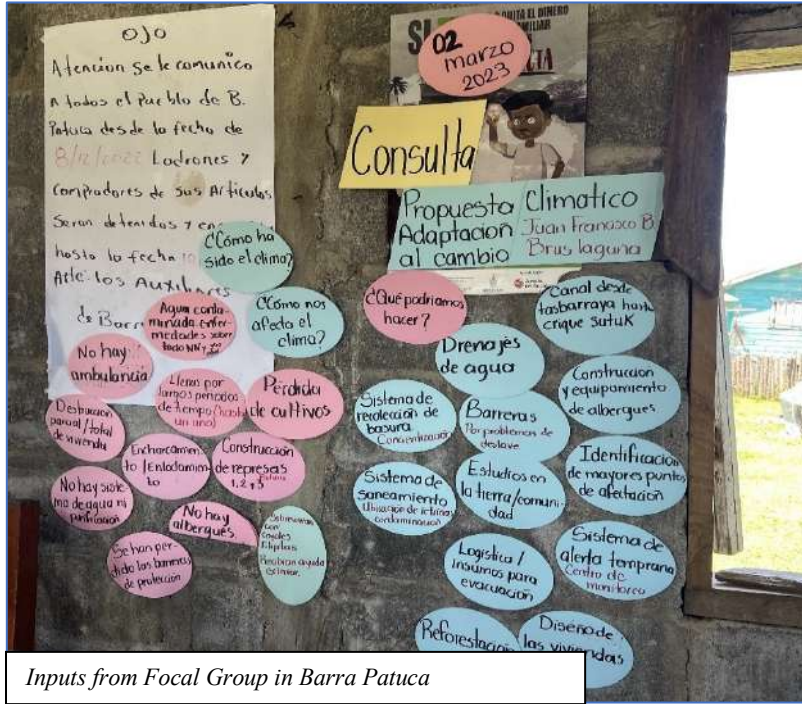 OJO
Atencion Se le comunico
A todos el Pueblo de B.
Patuca desde la fecha de
8/12/2022 Ladrones y
Compradores de sus Articulos
Seran detenidos y
hasta la fecha
Atte: los Auxiliares
de Barra
02
marzo
2023
Consulta
Propuesta
Adaptacion
al cambio
Climatico
Juan Francisco B.
Brus laguna
¿Cómo ha
sido el clima?
¿Cómo nos
afecta el
clima?
Agua conta-
minada enfer-
medades sobre
todo NN y
No hay
ambulancia
Llenas por
largos periodos
de tiempo (hasta
un año)
Pérdida
de cultivos
parcial/total
de vivienda
Encharcamien-
to / Enlodamin-
to
Construcción
de represas
1, 2 y 3
No hay siste
ma de agua ni
purificación
No hay
albergues
Se han per-
dido las barreras
de protección
Sobreviven
con
cocales
Reciben ayuda
¿Qué podriamos
hacer?
Canal desde
tasbarraya hasta
crique Sutuk
Drenajes
de agua
Construccion
y equipamiento
de albergues
Sistema de
recolección de
basura
Concientización
Barreras
Por problemas de
deslave
Identificación
de mayores puntos
de afectacion
Sistema de
saneamiento
Ubicación de letrinas
contaminación
Estudios en
la tierra/comuni-
dad
Sistema de
alerta temprana
Centro de
monitoreo
Logistica /
Insumos para
evacuación
Reforestación
Diseño de
las viviendas
Inputs from Focal Group in Barra Patuca